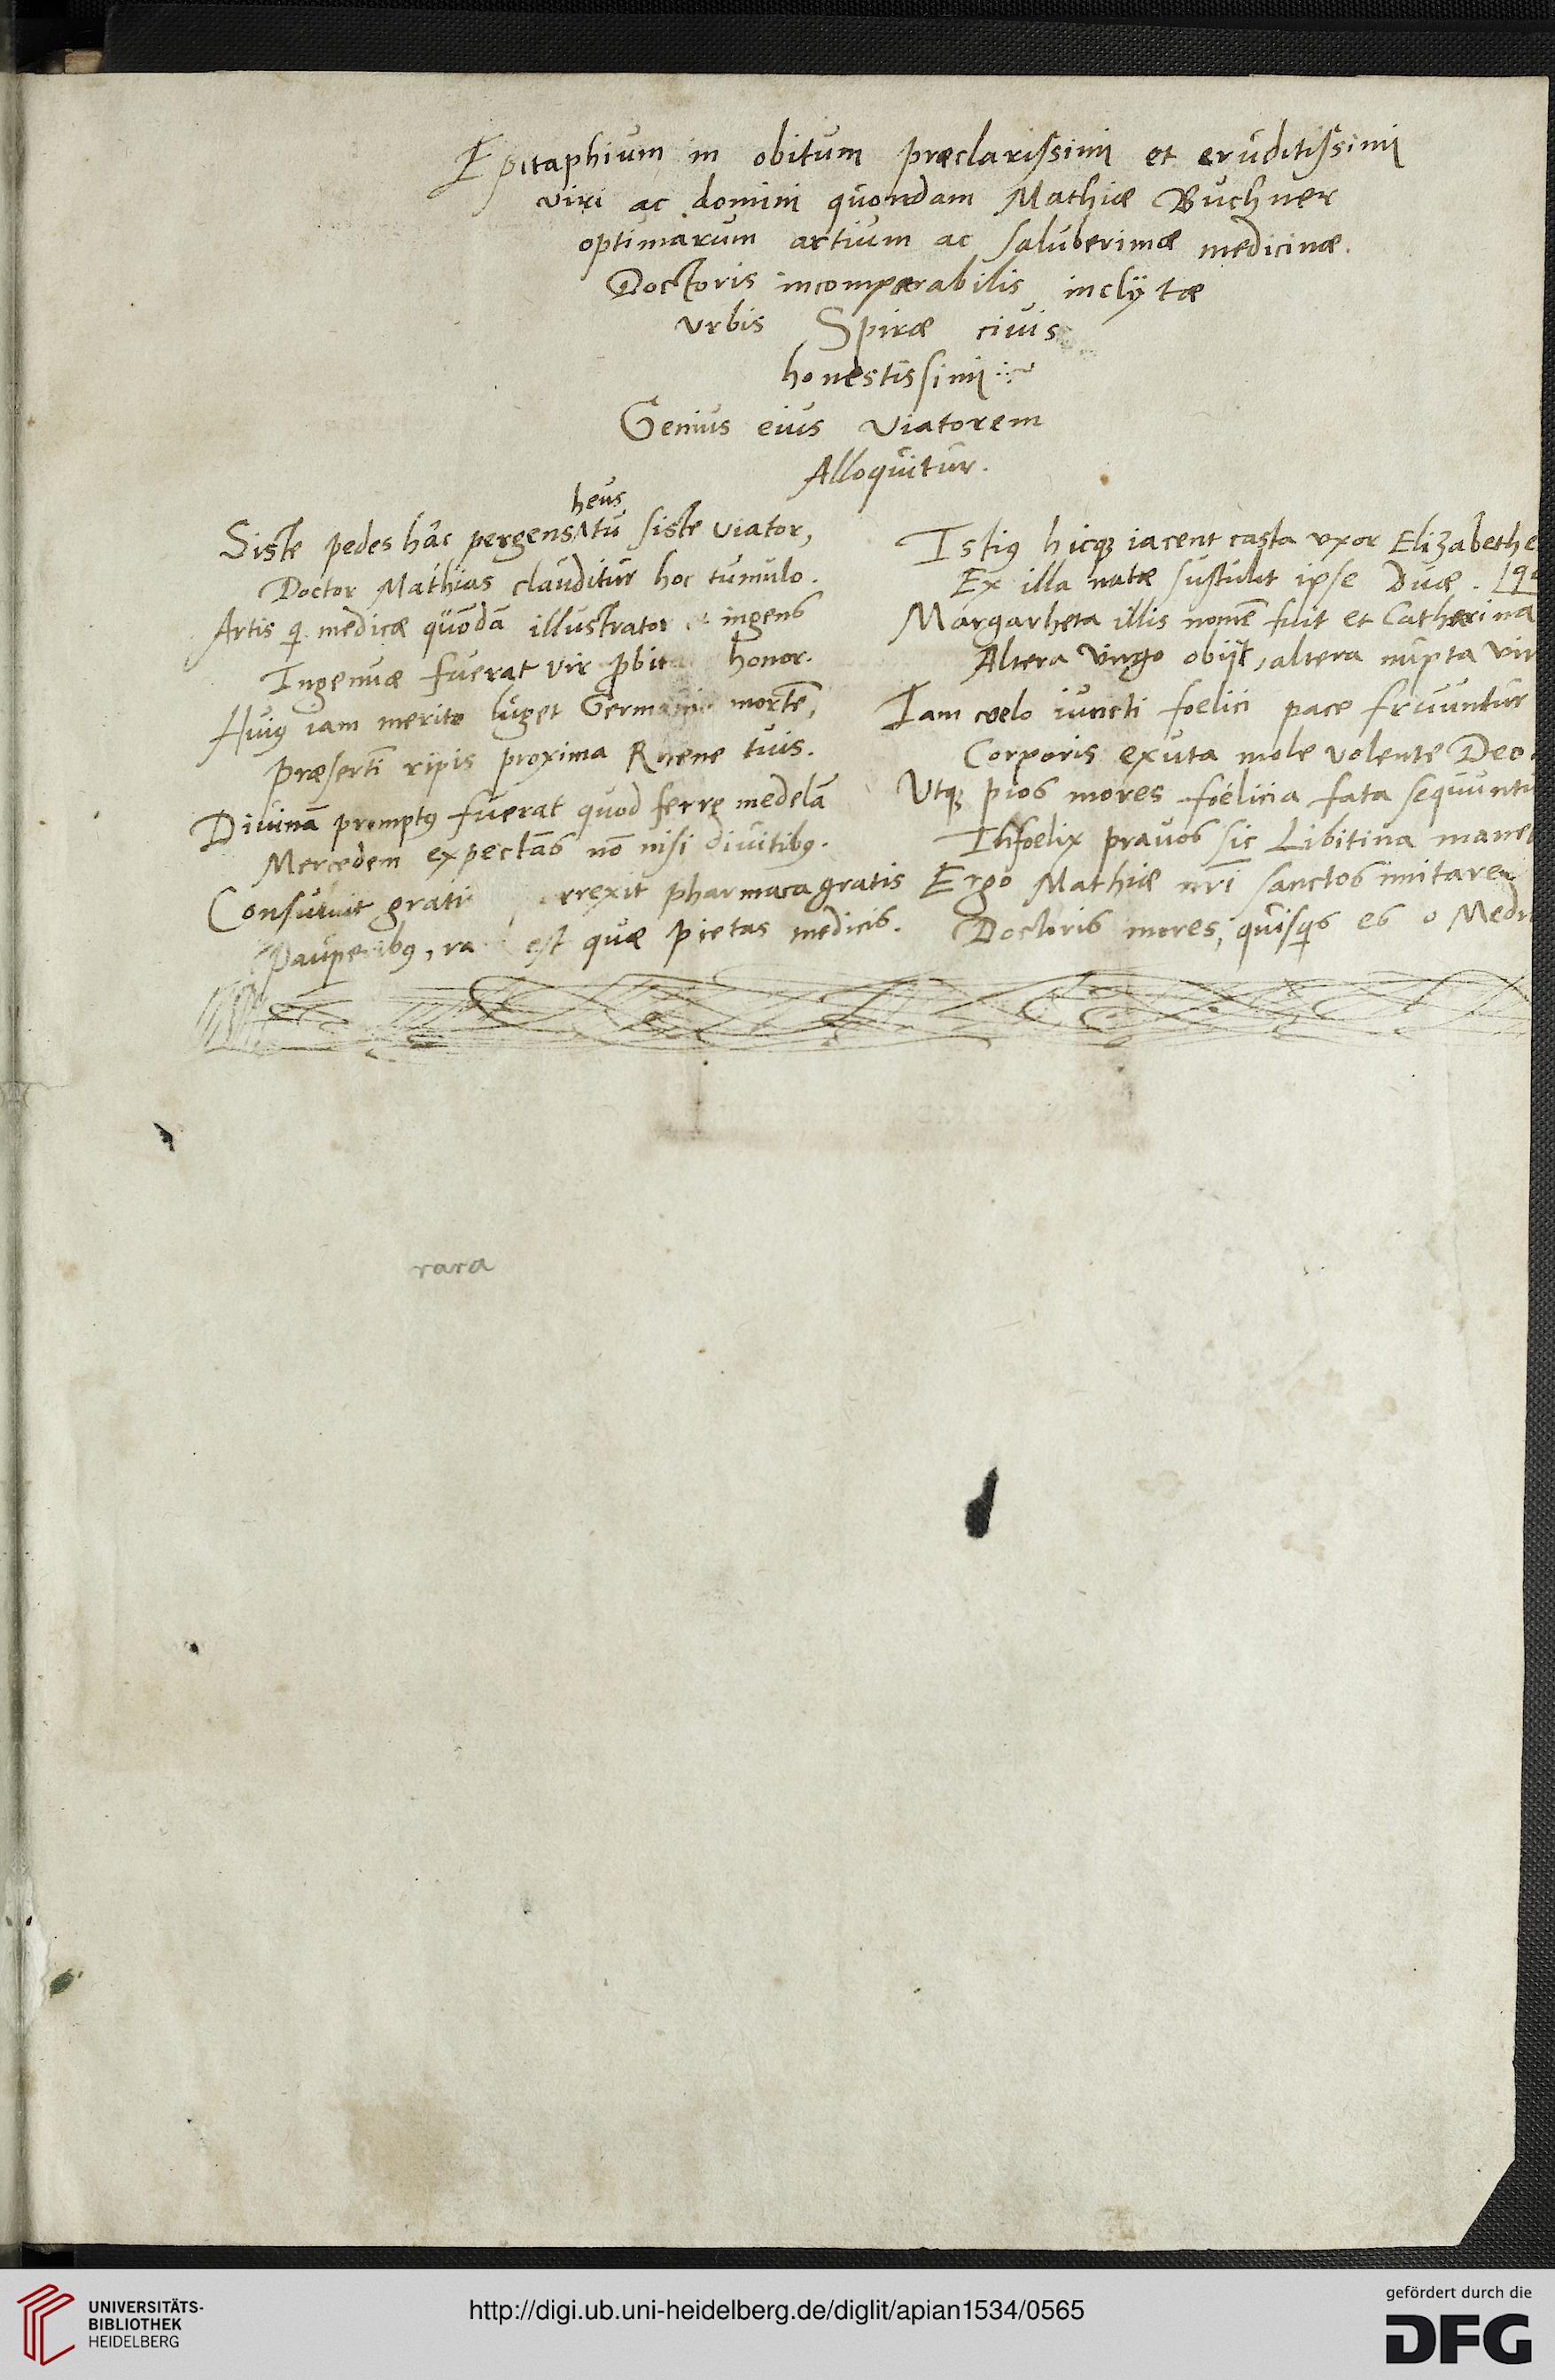 Epitaphium in obitum præclarissimi et eruditissimi
viri ac domini quondam Mathiæ Buchner
optimarum artium ac saluberimæ medicinæ.
Doctoris incomparabilis inclÿtæ
vrbis Spiræ ciuis
honestissimi
Genius eius viatorem
Alloquitur.
heus
Siste pedes hâc pergens ʌ tu siste viator,
Doctor Mathias clauditur hoc tumulo.
Artis q medicæ quōdā illustrator ingens
Ingenuæ fuerat vir honor.
Huiꝰ iam merito luget mortē,
Præsertī ripis proxima Rhene tuis.
Diuinā promptꝰ fuerat quod ferre medelā
Mercedem expectās nō nisi diuitibꝰ.
Consuluit grati rrexit pharmaca gratis
Pauperibꝰ, ra est quæ pietas medicis.
Istiꝰ hicqꝫ iacent casta vxor Elizabethe
Ex illa natæ sustulit ipse duæ.
Margarheta illis nomē fuit et Catherina
Altera virgo obijt, altera nupta vir
Iam coelo iuncti foelici pace fruuntur
Corporis exuta mole volente Deo.
Vtqꝫ pios mores foelicia fata sequunt
Infoelix prauos sic Libitina mane
Ergo Mathiæ nrī sanctos imitare
Doctoris mores, quisqs es o Medi
rara
UNIVERSITÄTS-
BIBLIOTHEK
HEIDELBERG
http://digi.ub.uni-heidelberg.de/diglit/apian1534/0565
gefördert durch die
DFG